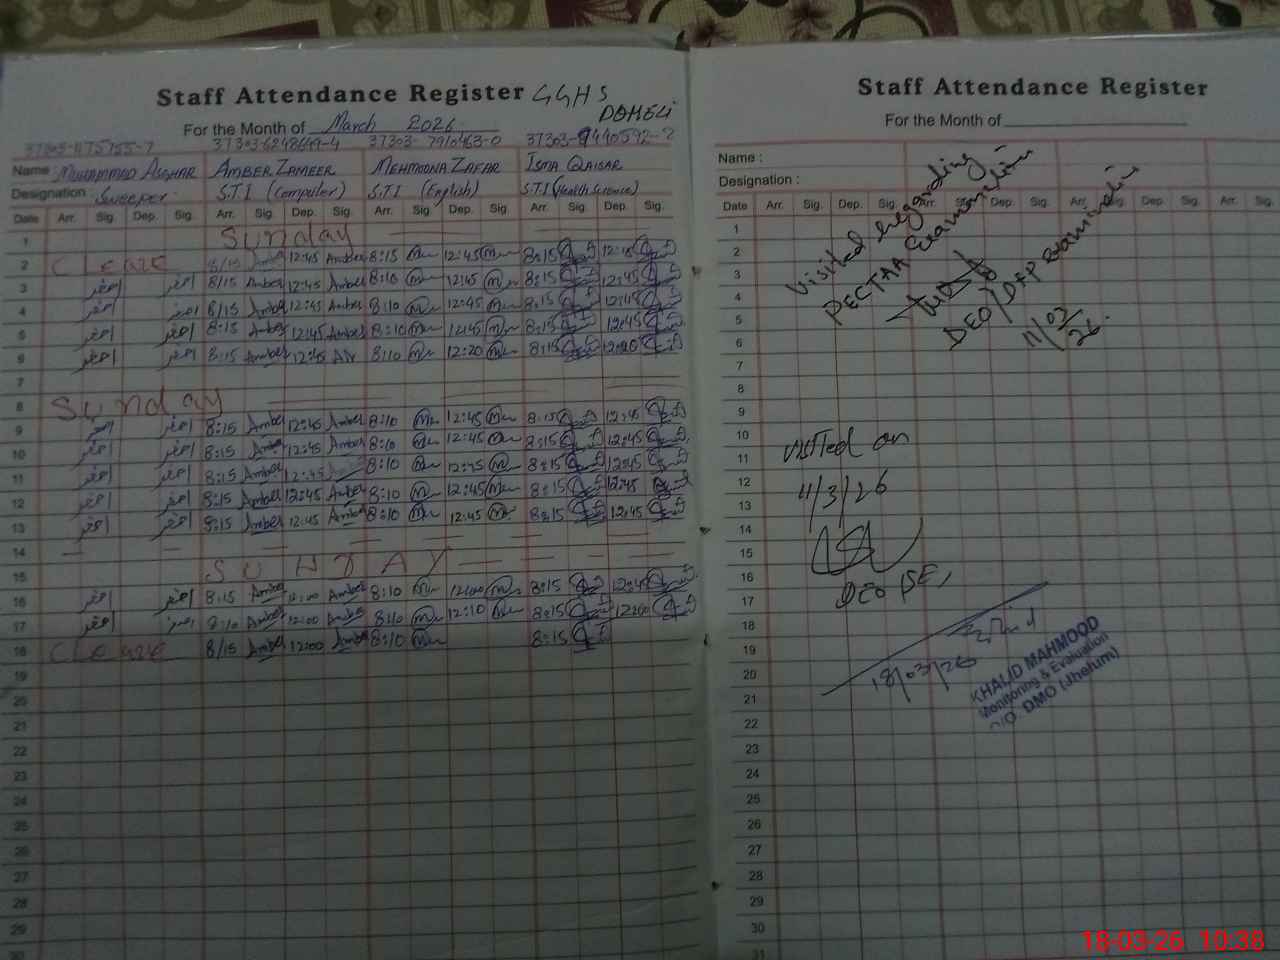 Staff Attendance Register GGHS
DOHELI
For the Month of March 2026
37303-6248649-4 37303-7910463-0
Name MUHAMMED ASGHAR AMBER ZAMEER MEHMOONA ZAFAR ISMA QAISAR
Designation : Sweeper S.T.I (Computer) S.T.I (English) S.T.I (Health Science)
Date Arr. Sig. Dep. Sig. Arr. Sig. Dep. Sig. Arr. Sig. Dep. Sig. Arr. Sig. Dep. Sig.
1 Sunday
2 8/15 12:45 Amber 8:15 12:45 8:15 12:45
3 اصغر اصغر 8/15 Amber 12:45 Amber 8:10 12:45 8:15 12:45
4 اصغر اصغر 8/15 Amber 12:45 Amber 8:10 12:45 8:15 12:45
5 اصغر اصغر 8:15 Amber 12:45 Amber 8:10 12:45 8:15 12:45
6 اصغر اصغر 8:15 Amber 12:45 8:10 12:20 8:15 12:20
7
8 Sunday
9 اصغر اصغر 8:15 Amber 12:45 Amber 8:10 12:45 8:15 12:45
10 اصغر اصغر 8:15 Amber 12:45 Amber 8:10 12:45 8:15 12:45
11 اصغر اصغر 8:15 Amber 12:45 8:10 12:45 8:15 12:45
12 اصغر اصغر 8:15 Amber 12:45 Amber 8:10 12:45 8:15 12:45
13 اصغر اصغر 8:15 Amber 12:45 Amber 8:10 12:45 8:15 12:45
14
15 SUNDAY
16 اصغر اصغر 8:15 Amber 12:00 Amber 8:10 12:00 8:15 12:45
17 اصغر اصغر 8:10 Amber 12:00 Amber 8:10 12:10 8:15 12:00
18 8/15 Amber 12:00 Amber 8:10 8:15
19
20
21
22
23
24
25
26
27
28
29
Staff Attendance Register
For the Month of
Name :
Designation :
Date Arr. Sig. Dep. Sig. Arr. Sig. Dep. Sig. Arr. Sig. Dep. Sig. Arr. Sig.
1
2
3
4
5
6
7
8
9
10
11
12
13
14
15
16
17
18
19
20
21
22
23
24
25
26
27
28
29
30
31
Visited regarding
PECTAA Examination
DEO/
11/03/26.
visited on
4/3/26
DEO (SE)
18/03/26
KHALID MAHMOOD
Monitoring & Evaluation
O/O DMO (Jhelum)
18-03-26 10:38